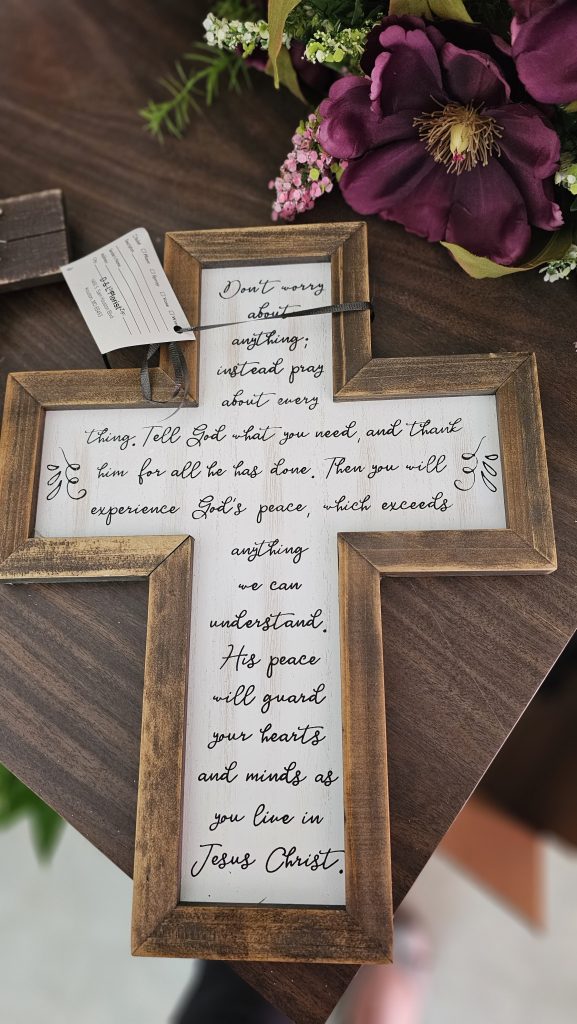 Don't worry
about
anything;
instead pray
about every
thing. Tell God what you need, and thank
him for all he has done. Then you will
experience God's peace, which exceeds
anything
we can
understand.
His peace
will guard
your hearts
and minds as
you live in
Jesus Christ.